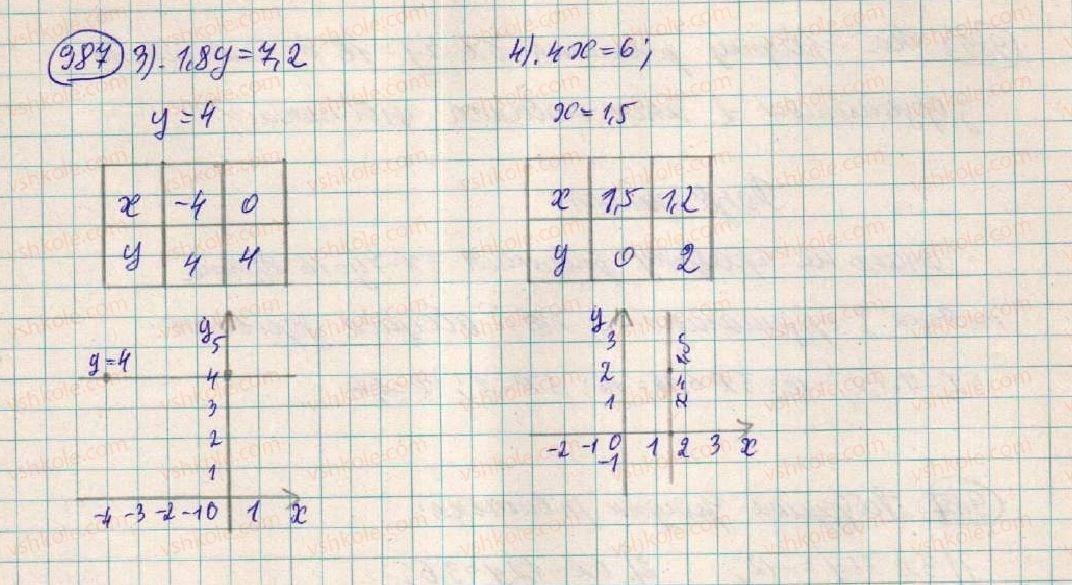 987 3). 1,8y = 7,2
y = 4
x -4 0
y 4 4
y
5
y=4
4
3
2
1
-4 -3 -2 -1 0 1 x
4). 4x = 6;
x = 1,5
x 1,5 1,2
y 0 2
y
3
2
1
x=1,5
-2 -1 0 1 2 3 x
-1
vshkole.com